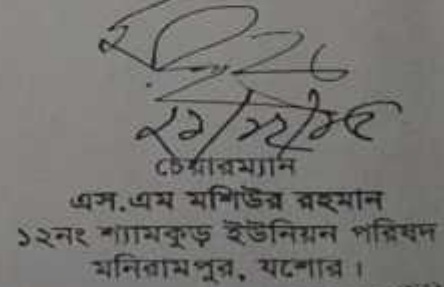 চেয়ারম্যান
এস.এম মশিউর রহমান
১২নং শ্যামকুড় ইউনিয়ন পরিষদ
মনিরামপুর, যশোর।